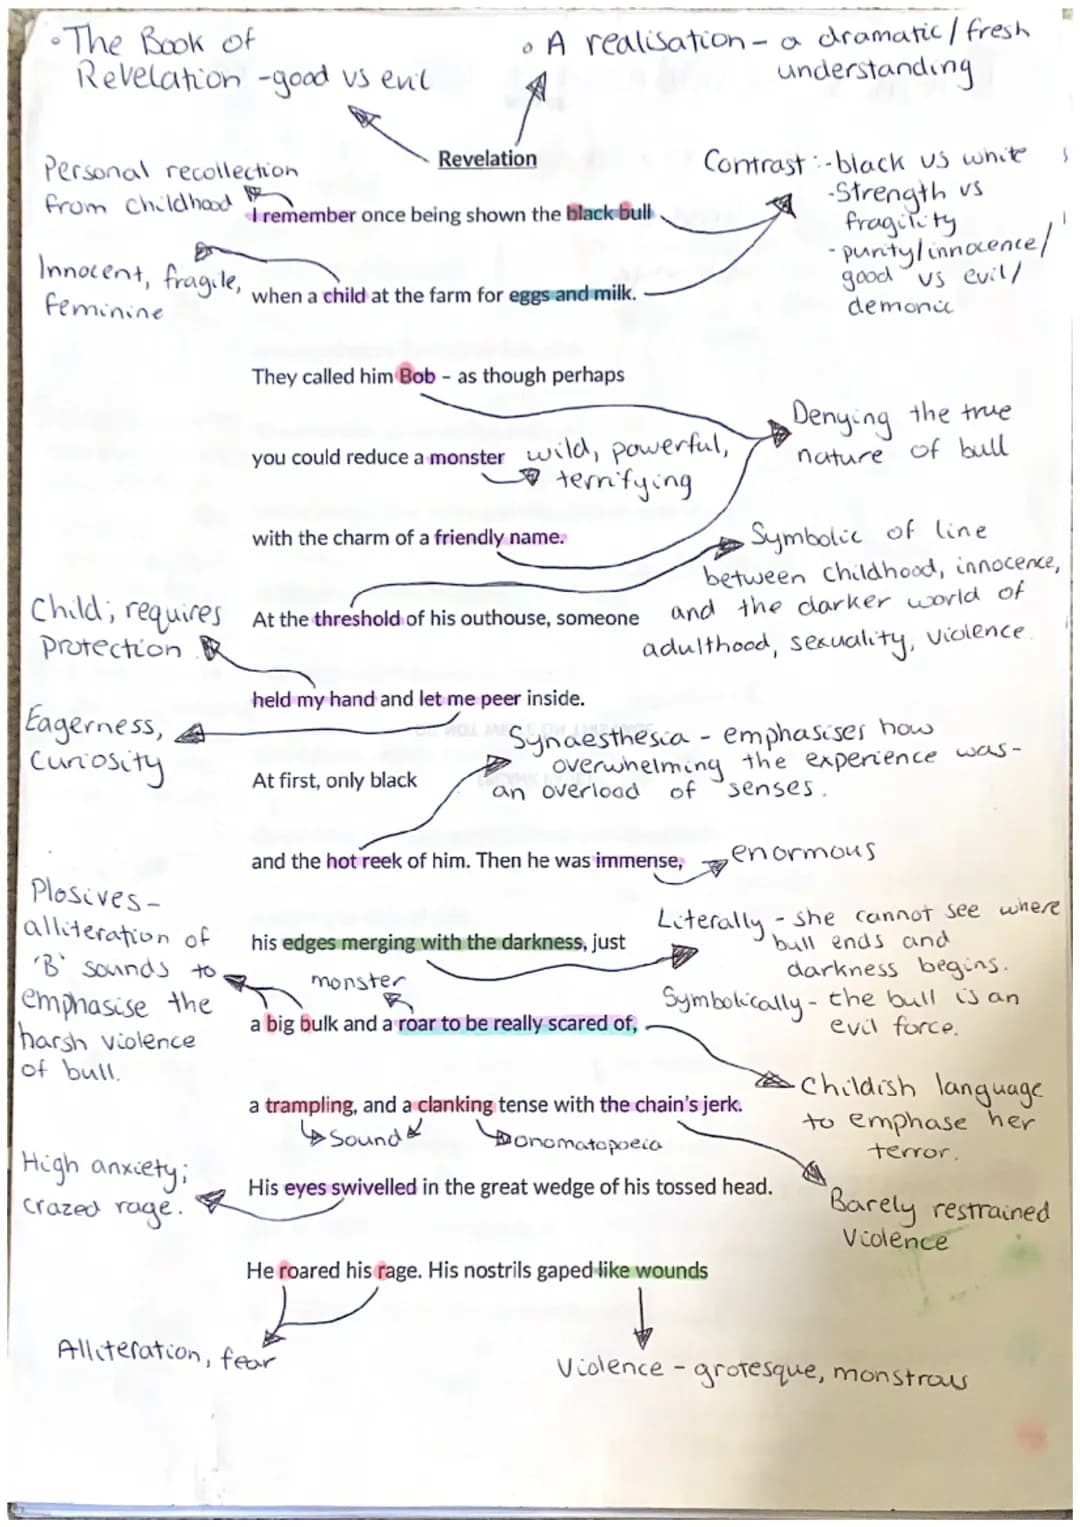 • The Book of
Revelation - good vs evil
• A realisation - a dramatic / fresh
understanding
Revelation
Personal recollection
from childhood
Contrast: - black vs white
- Strength vs
fragility
- purity/innocence/
good vs evil/
demonic
I remember once being shown the black bull
Innocent, fragile,
feminine
when a child at the farm for eggs and milk.
They called him Bob - as though perhaps
Denying the true
nature of bull
you could reduce a monster
wild, powerful,
terrifying
with the charm of a friendly name.
Symbolic of line
between childhood, innocence,
and the darker world of
adulthood, sexuality, violence.
Child; requires
protection
At the threshold of his outhouse, someone
held my hand and let me peer inside.
Eagerness,
Curiosity
Synaesthesia - emphasises how
overwhelming the experience was -
an overload of senses.
At first, only black
and the hot reek of him. Then he was immense,
enormous
Plosives -
alliteration of
'B' sounds to
emphasise the
harsh violence
of bull.
his edges merging with the darkness, just
Literally - she cannot see where
bull ends and
darkness begins.
Symbolically - the bull is an
evil force.
monster
a big bulk and a roar to be really scared of,
Childish language
to emphase her
terror.
a trampling, and a clanking tense with the chain's jerk.
Sound
onomatopoeia
High anxiety;
crazed rage.
His eyes swivelled in the great wedge of his tossed head.
Barely restrained
Violence
He roared his rage. His nostrils gaped like wounds
Alliteration, fear
Violence - grotesque, monstrous